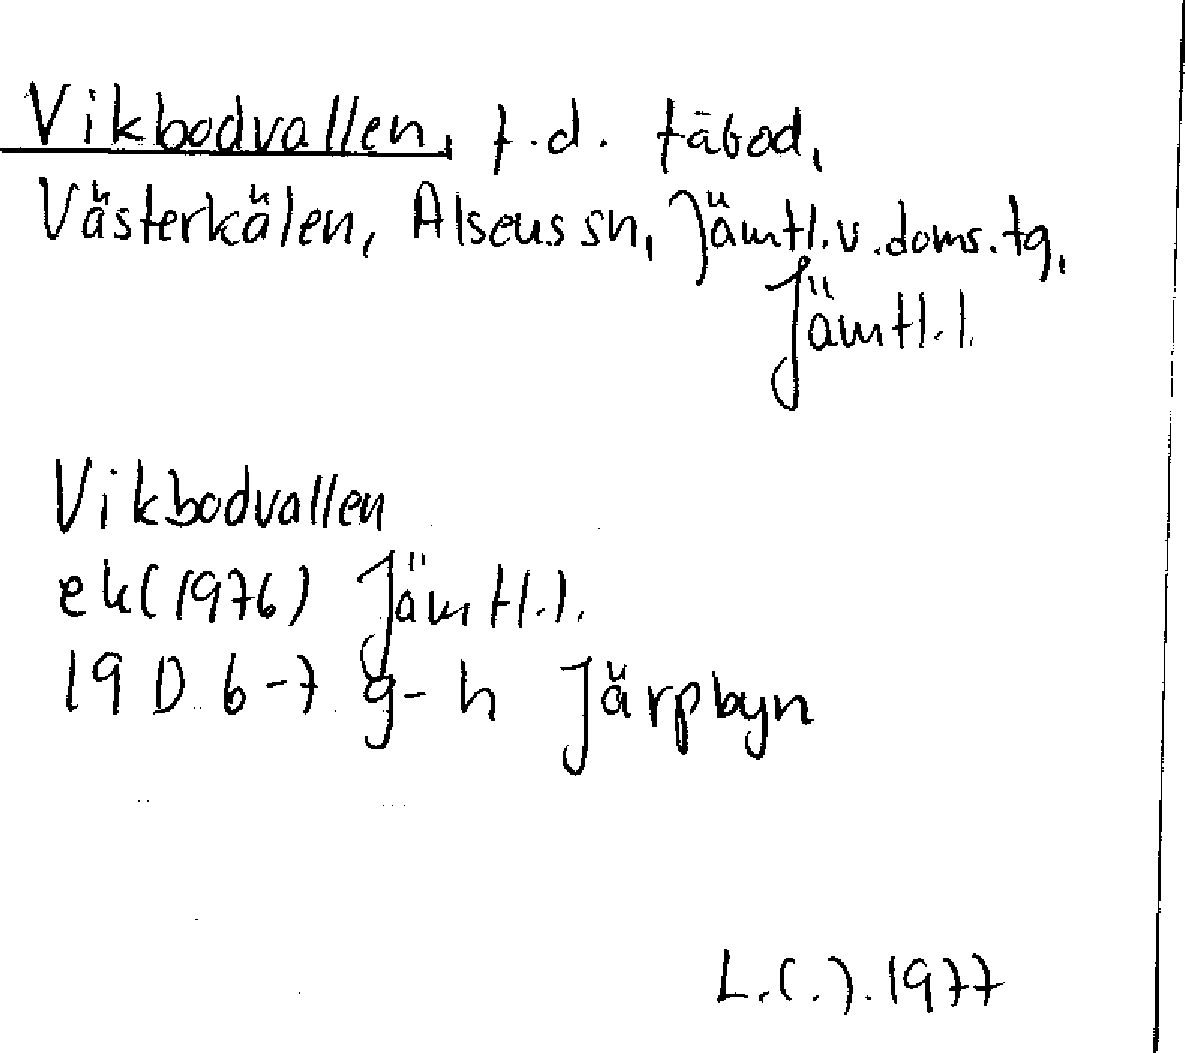 Vikbodvallen, f.d. fäbod,
Västerkälen, Alsens sn, Jämtl.v.doms.tg,
Jämtl.l.
Vikbodvallen
ek(1976) Jämtl.l.
19 D 6-7 g-h Järpbyn
L.C.J. 1977